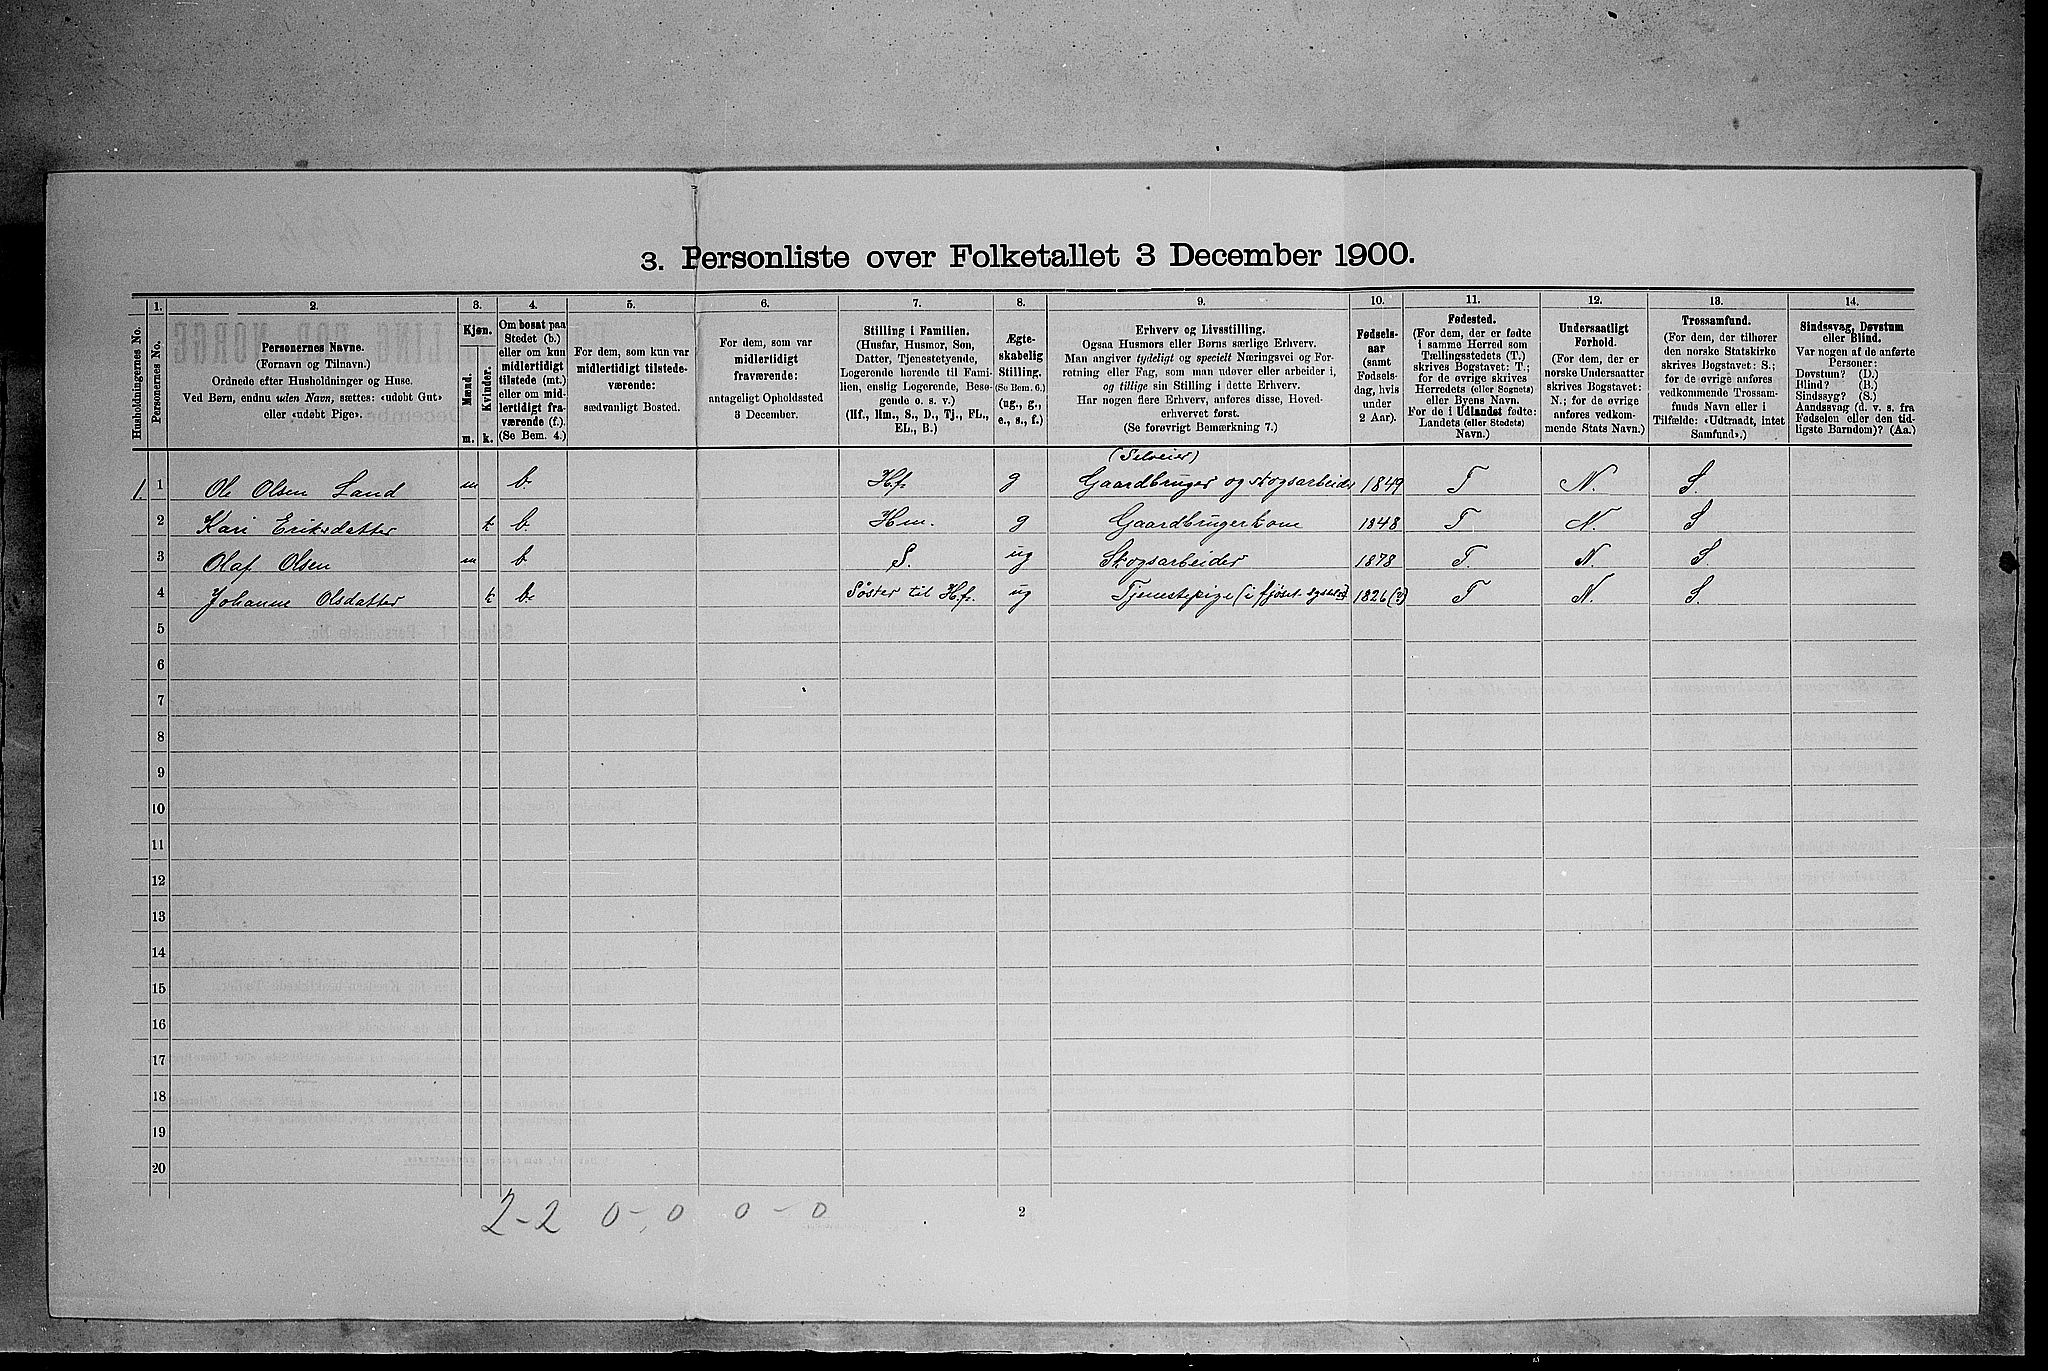 3. Personliste over Folketallet 3 December 1900.
Husholdningernes No.
1.
Personernes No.
2.
Personernes Navne.
(Fornavn og Tilnavn.)
Ordnede efter Husholdninger og Huse.
Ved Børn, endnu uden Navn, sættes: «udøbt Gut»
eller «udøbt Pige».
3.
Kjøn.
Mænd.
Kvinder.
m.
k.
4.
Om bosat paa
Stedet (b.)
eller om kun
midlertidigt
tilstede (mt.)
eller om mid-
lertidigt fra-
værende (f.).
(Se Bem. 4.)
5.
For dem, som kun var
midlertidigt tilstede-
værende:
sædvanligt Bosted.
6.
For dem, som var
midlertidigt
fraværende:
antageligt Opholdssted
3 December.
7.
Stilling i Familien.
(Husfar, Husmor, Søn,
Datter, Tjenestetyende,
Logerende hørende til Fami-
lien, enslig Logerende, Besø-
gende o. s. v.)
(Hf., Hm., S., D., Tj., FL.,
EL., B.)
8.
Ægte-
skabelig
Stilling.
(Se Bem. 6.)
(ug., g.,
e., s., f.)
9.
Erhverv og Livsstilling.
Ogsaa Husmors eller Børns særlige Erhverv.
Man angiver tydeligt og specielt Næringsvei og For-
retning eller Fag, som man udøver eller arbeider i,
og tillige sin Stilling i dette Erhverv.
Har nogen flere Erhverv, anføres disse, Hoved-
erhvervet først.
(Se forøvrigt Bemærkning 7.)
10.
Fødsels-
aar
(samt
Fødsels-
dag, hvis
under
2 Aar).
11.
Fødested.
(For dem, der er fødte
i samme Herred som
Tællingsstedets (T.)
skrives Bogstavet: T.;
for de øvrige skrives
Herredets (eller Sognets)
eller Byens Navn.
For de i Udlandet fødte:
Landets (eller Stedets)
Navn.)
12.
Undersaatligt
Forhold.
(For dem, der er
norske Undersaatter
skrives Bogstavet:
N.; for de øvrige
anføres vedkom-
mende Stats Navn.)
13.
Trossamfund.
(For dem, der tilhører
den norske Statskirke
skrives Bogstavet: S.;
for de øvrige anføres
vedkommende Trossam-
funds Navn eller i
Tilfælde: «Udtraadt, intet
Samfund».)
14.
Sindssvag, Døvstum
eller Blind.
Var nogen af de anførte
Personer:
Døvstum? (D.)
Blind? (B.)
Sindssyg? (S.)
Aandssvag (d. v. s. fra
Fødselen eller den tid-
ligste Barndom)? (Aa.)
(Selveier)
1. 1 Ole Olsen Land m b. Hf. g Gaardbruger og skogsarbeider 1849 T N. S.
2 Kari Eriksdatter k b. Hm. g Gaardbrugerkone 1848 T N. S
3 Olaf Olsen m b S. ug Skogsarbeider 1878 T. N. S.
4 Johanne Olsdatter k b. Søster til Hf. ug Tjenestepige (i fjøset 1826 (?) T N. S.
5
6
7
8
9
10
11
12
13
14
15
16
17
18
19
20
2-2 0-0 0-0
2